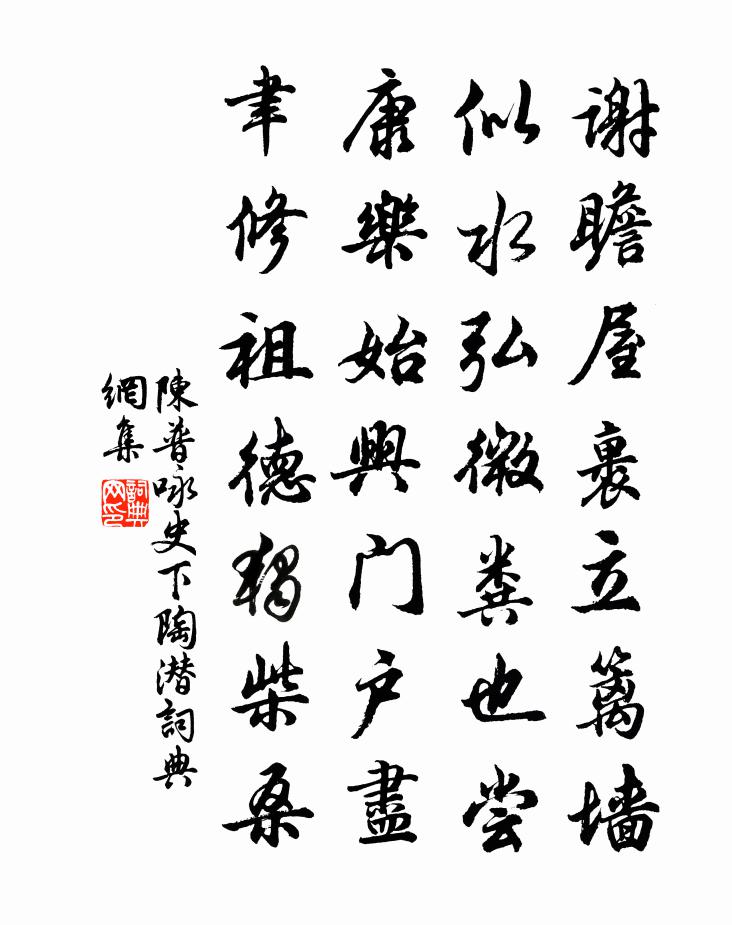 谢瞻屋裏立篱墙
似水弘微粪也尝
康樂始興门户盡
聿修祖德独柴桑
陳普咏史下陶潜詞典
網集
詞典网印